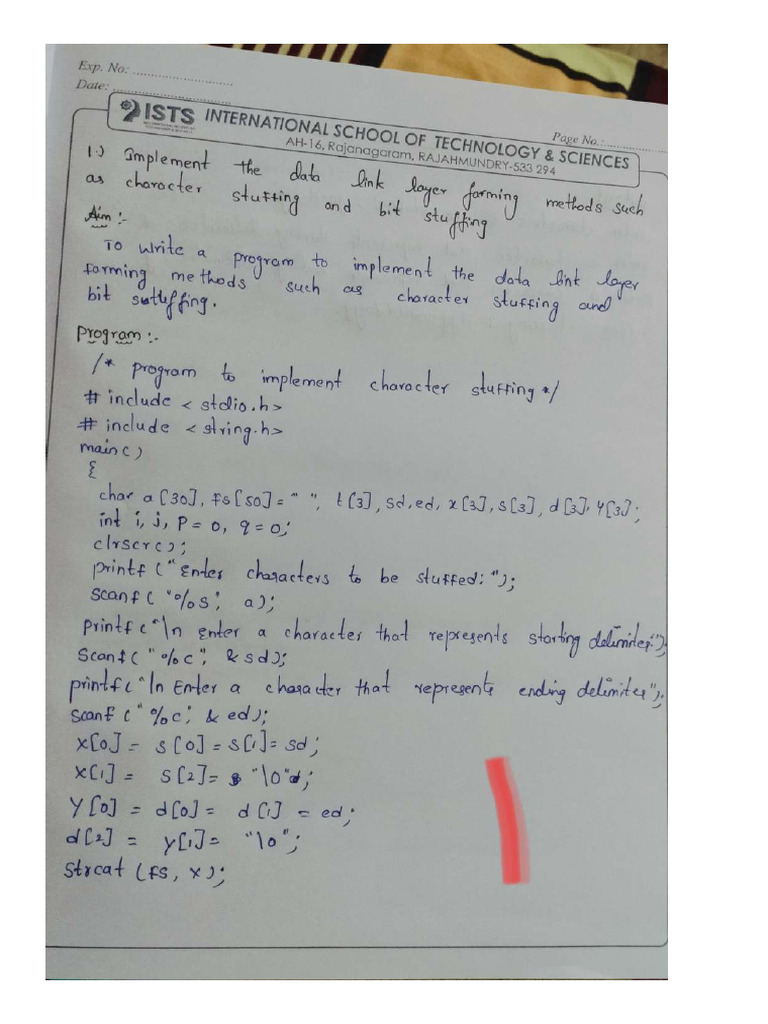 Exp. No: ..........................
Date: ..............................
ISTS INTERNATIONAL SCHOOL OF TECHNOLOGY & SCIENCES
Page No.:..................
AH-16, Rajanagaram, RAJAHMUNDRY-533 294
1.) Implement the data link layer farming methods such
as character stuffing and bit stuffing
Aim :-
To write a program to implement the data link layer
farming methods such as character stuffing and
bit stuffing.
Program :-
/* program to implement character stuffing */
# include < stdio.h>
# include < string.h>
main()
{
char a [30], fs[50]= " ", t[3], sd,ed, x[3], s[3], d[3], y[3];
int i, j, p = 0, q = 0;
clrscr();
printf ("Enter characters to be stuffed:");
scanf( "%s", a);
printf("\n enter a character that represents starting delimiter:");
scanf( " %c", & sd);
printf("\n Enter a character that represents ending delimiter");
scanf (" %c", & ed);
x[0] = s[0] = s[1]= sd;
x[1] = s[2]= "\0";
y[0] = d[0]= d[1] = ed;
d[2] = y[1]= "\0";
strcat (fs, x);
1